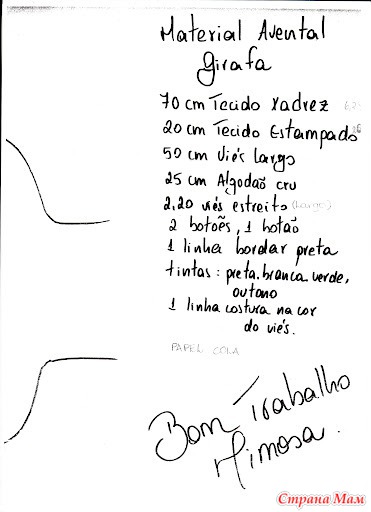 Material Avental
Girafa
70 cm Tecido xadrez
20 cm Tecido Estampado
50 cm Viés Largo
25 cm Algodão cru
2,20 viés estreito (Largo)
2 botões, 1 botão
1 linha bordar preta
tintas: preta.branca.verde,
outono
1 linha costura na cor
do viés.
PAPEL COLA
Bom Trabalho
Mimosa.
Страна Мам